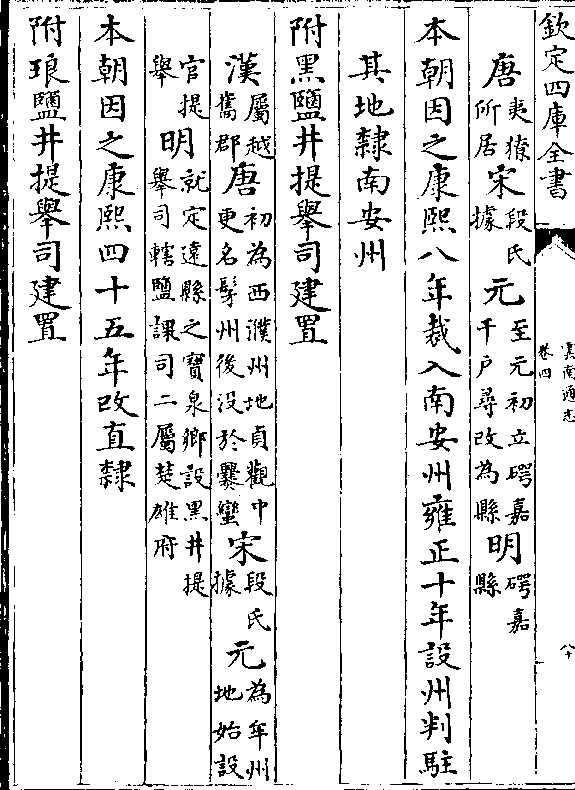 欽定四庫全書
雲南通志
卷四
八十
唐夷獠所居宋段氏據元至元初立𥔲嘉千户尋改為縣明𥔲嘉縣
本朝因之康熙八年裁入南安州雍正十年設州判駐
其地隸南安州
附黑鹽井提舉司建置
漢屬越嶲郡唐初為西濮州地貞觀中更名髳州後沒於爨蠻宋段氏據元為牟州地始設
官提舉明就定遠縣之寶泉鄉設黑井提舉司轄鹽課司二屬楚雄府
本朝因之康熙四十五年改直隸
附琅鹽井提舉司建置